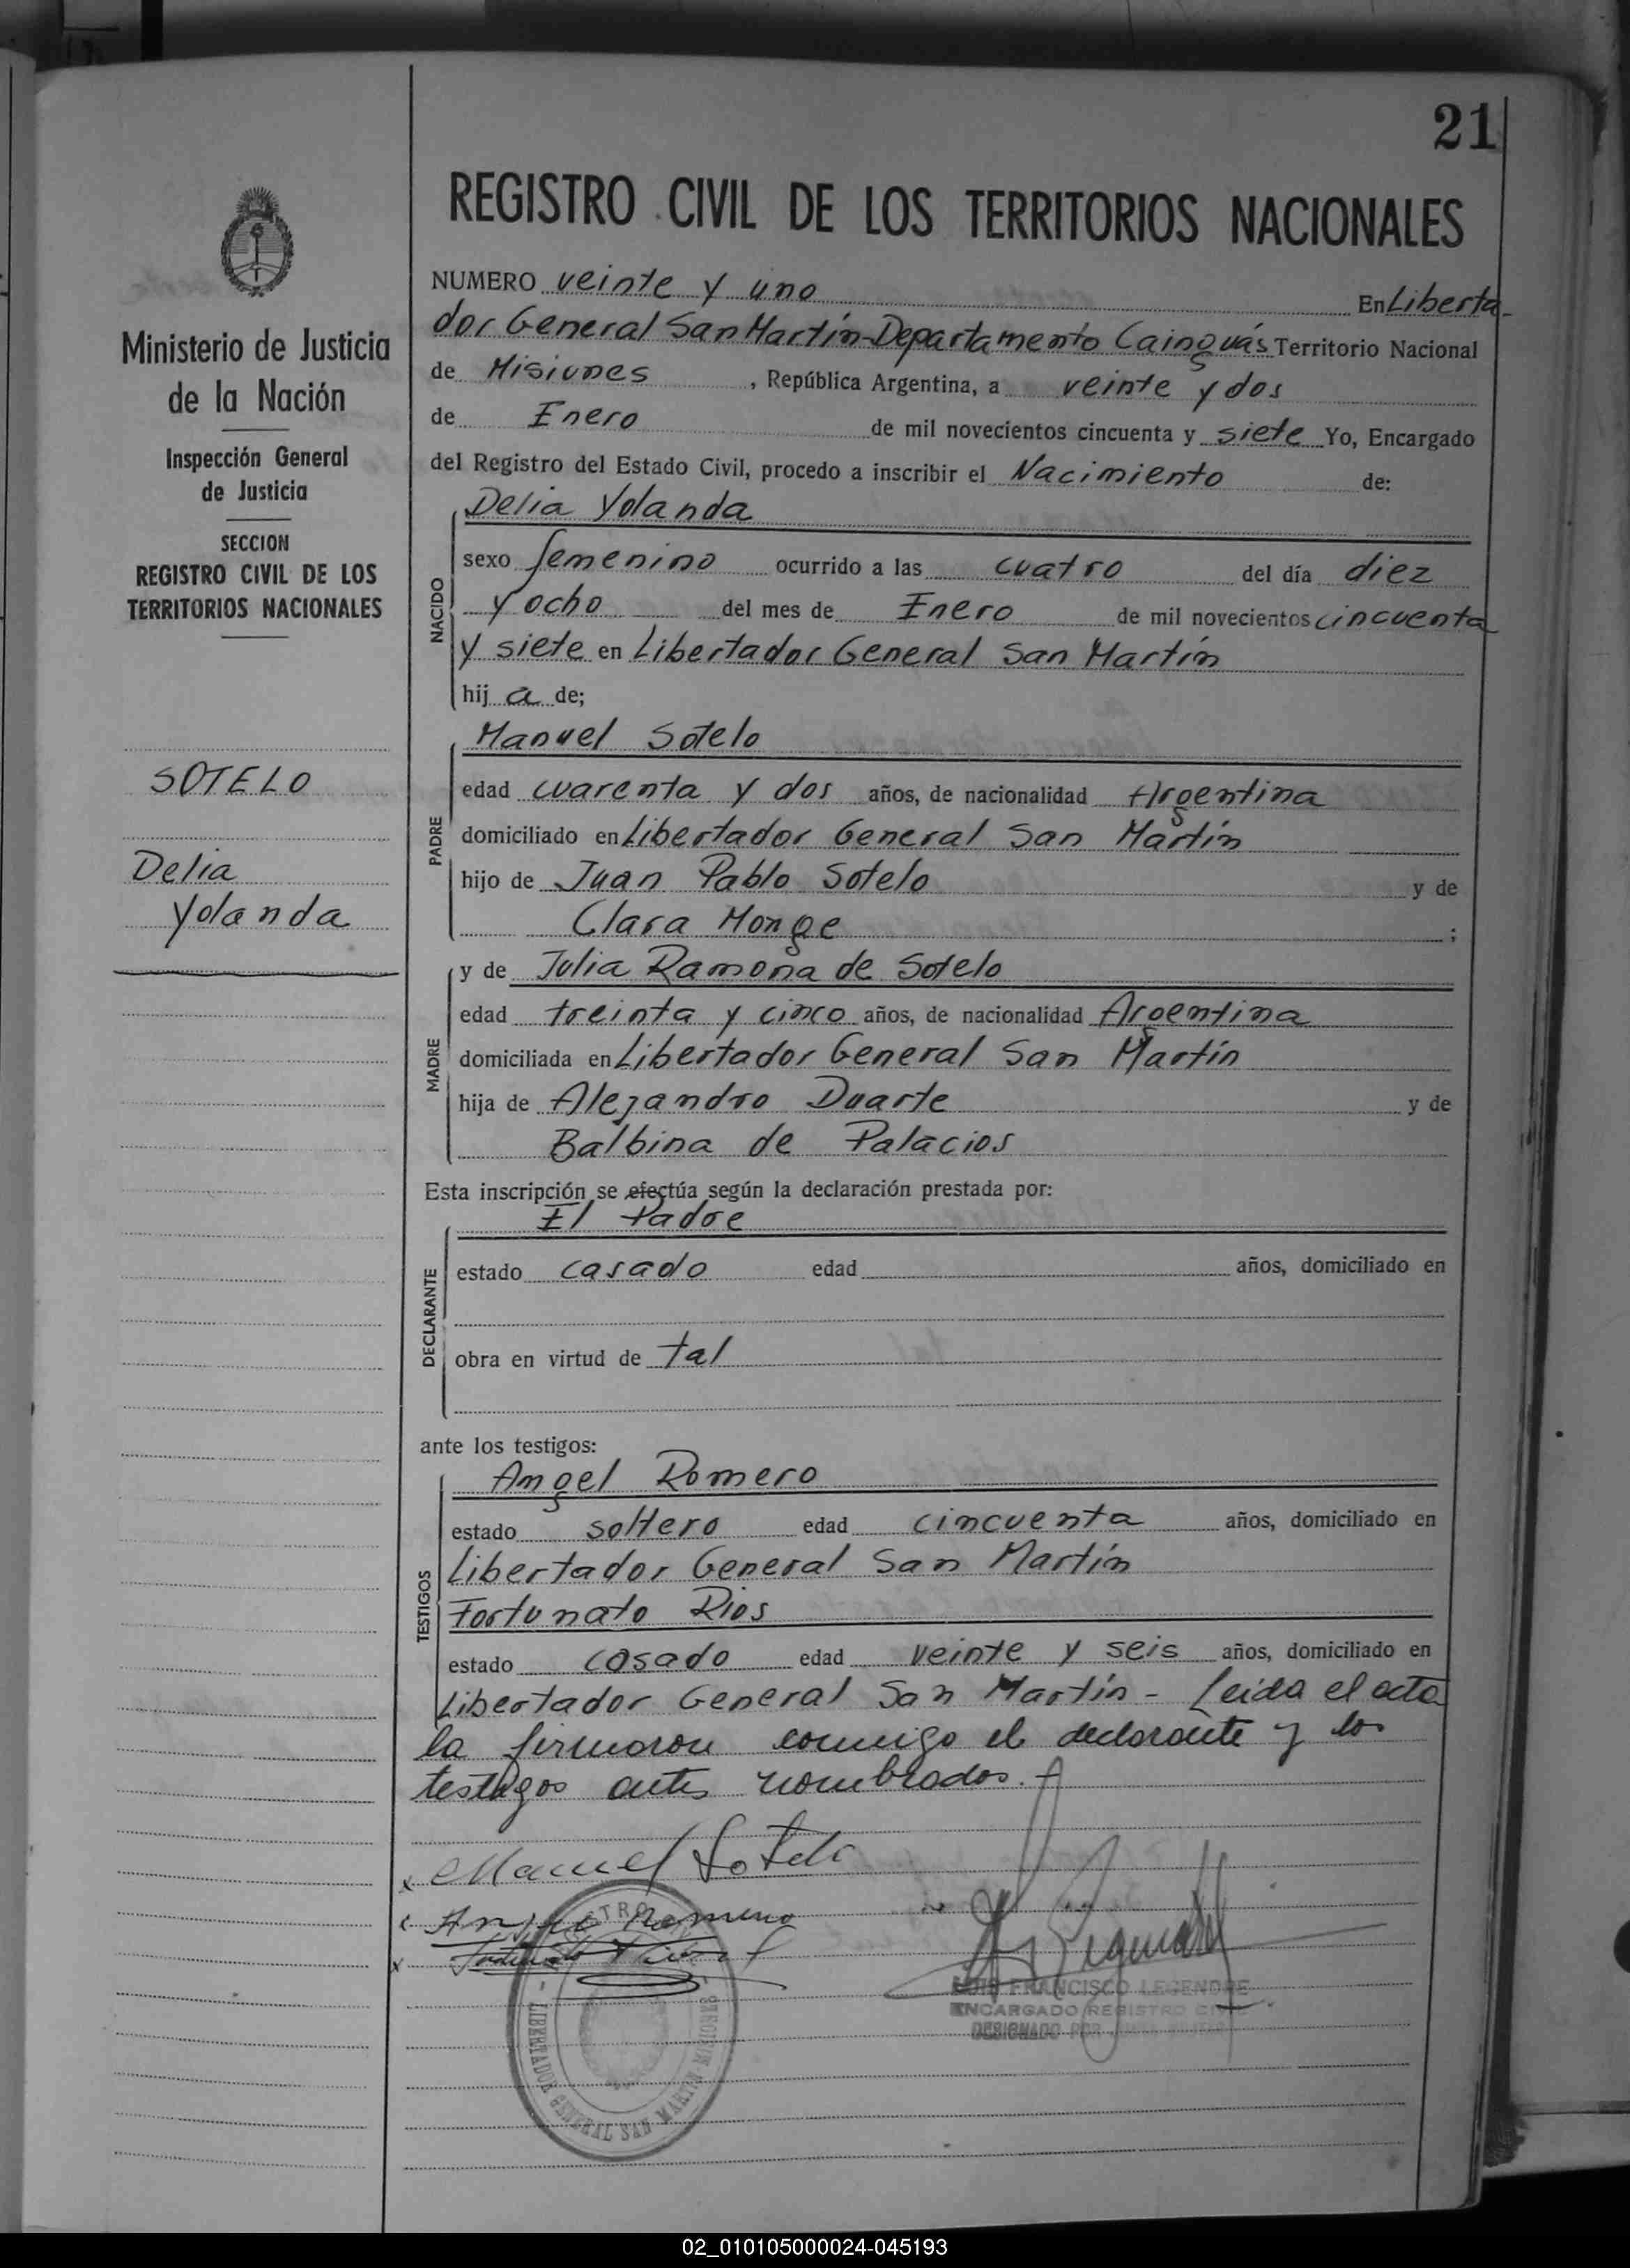 21
REGISTRO CIVIL DE LOS TERRITORIOS NACIONALES
Ministerio de Justicia
de la Nación
Inspección General
de Justicia
SECCION
REGISTRO CIVIL DE LOS
TERRITORIOS NACIONALES
SOTELO
Delia
Yolanda
NUMERO veinte y uno En Liberta-
dor General San Martín-Departamento Cainguás Territorio Nacional
de Misiones, República Argentina, a veinte y dos
de Enero de mil novecientos cincuenta y siete Yo, Encargado
del Registro del Estado Civil, procedo a inscribir el Nacimiento de:
NACIDO
Delia Yolanda
sexo femenino ocurrido a las cuatro del día diez
y ocho del mes de Enero de mil novecientos cincuenta
y siete en Libertador General San Martín
hij a de;
PADRE
Manuel Sotelo
edad cuarenta y dos años, de nacionalidad Argentina
domiciliado en Libertador General San Martín
hijo de Juan Pablo Sotelo y de
Clara Monge ;
MADRE
y de Julia Ramona de Sotelo
edad treinta y cinco años, de nacionalidad Argentina
domiciliada en Libertador General San Martín
hija de Alejandro Duarte y de
Balbina de Palacios
Esta inscripción se efectúa según la declaración prestada por:
DECLARANTE
El Padre
estado casado edad años, domiciliado en
obra en virtud de tal
ante los testigos:
TESTIGOS
Angel Romero
estado soltero edad cincuenta años, domiciliado en
Libertador General San Martín
Fortunato Rios
estado casado edad veinte y seis años, domiciliado en
Libertador General San Martín - Leida el acta
la firmaron conmigo el declarante y los
testigos antes nombrados.-
x Manuel Sotelo
Angel Romero
x
LUIS FRANCISCO LEGENDRE
ENCARGADO REGISTRO
DESIGNADO POR
LIBERTADOR GENERAL SAN MARTIN MISIONES
02_010105000024-045193